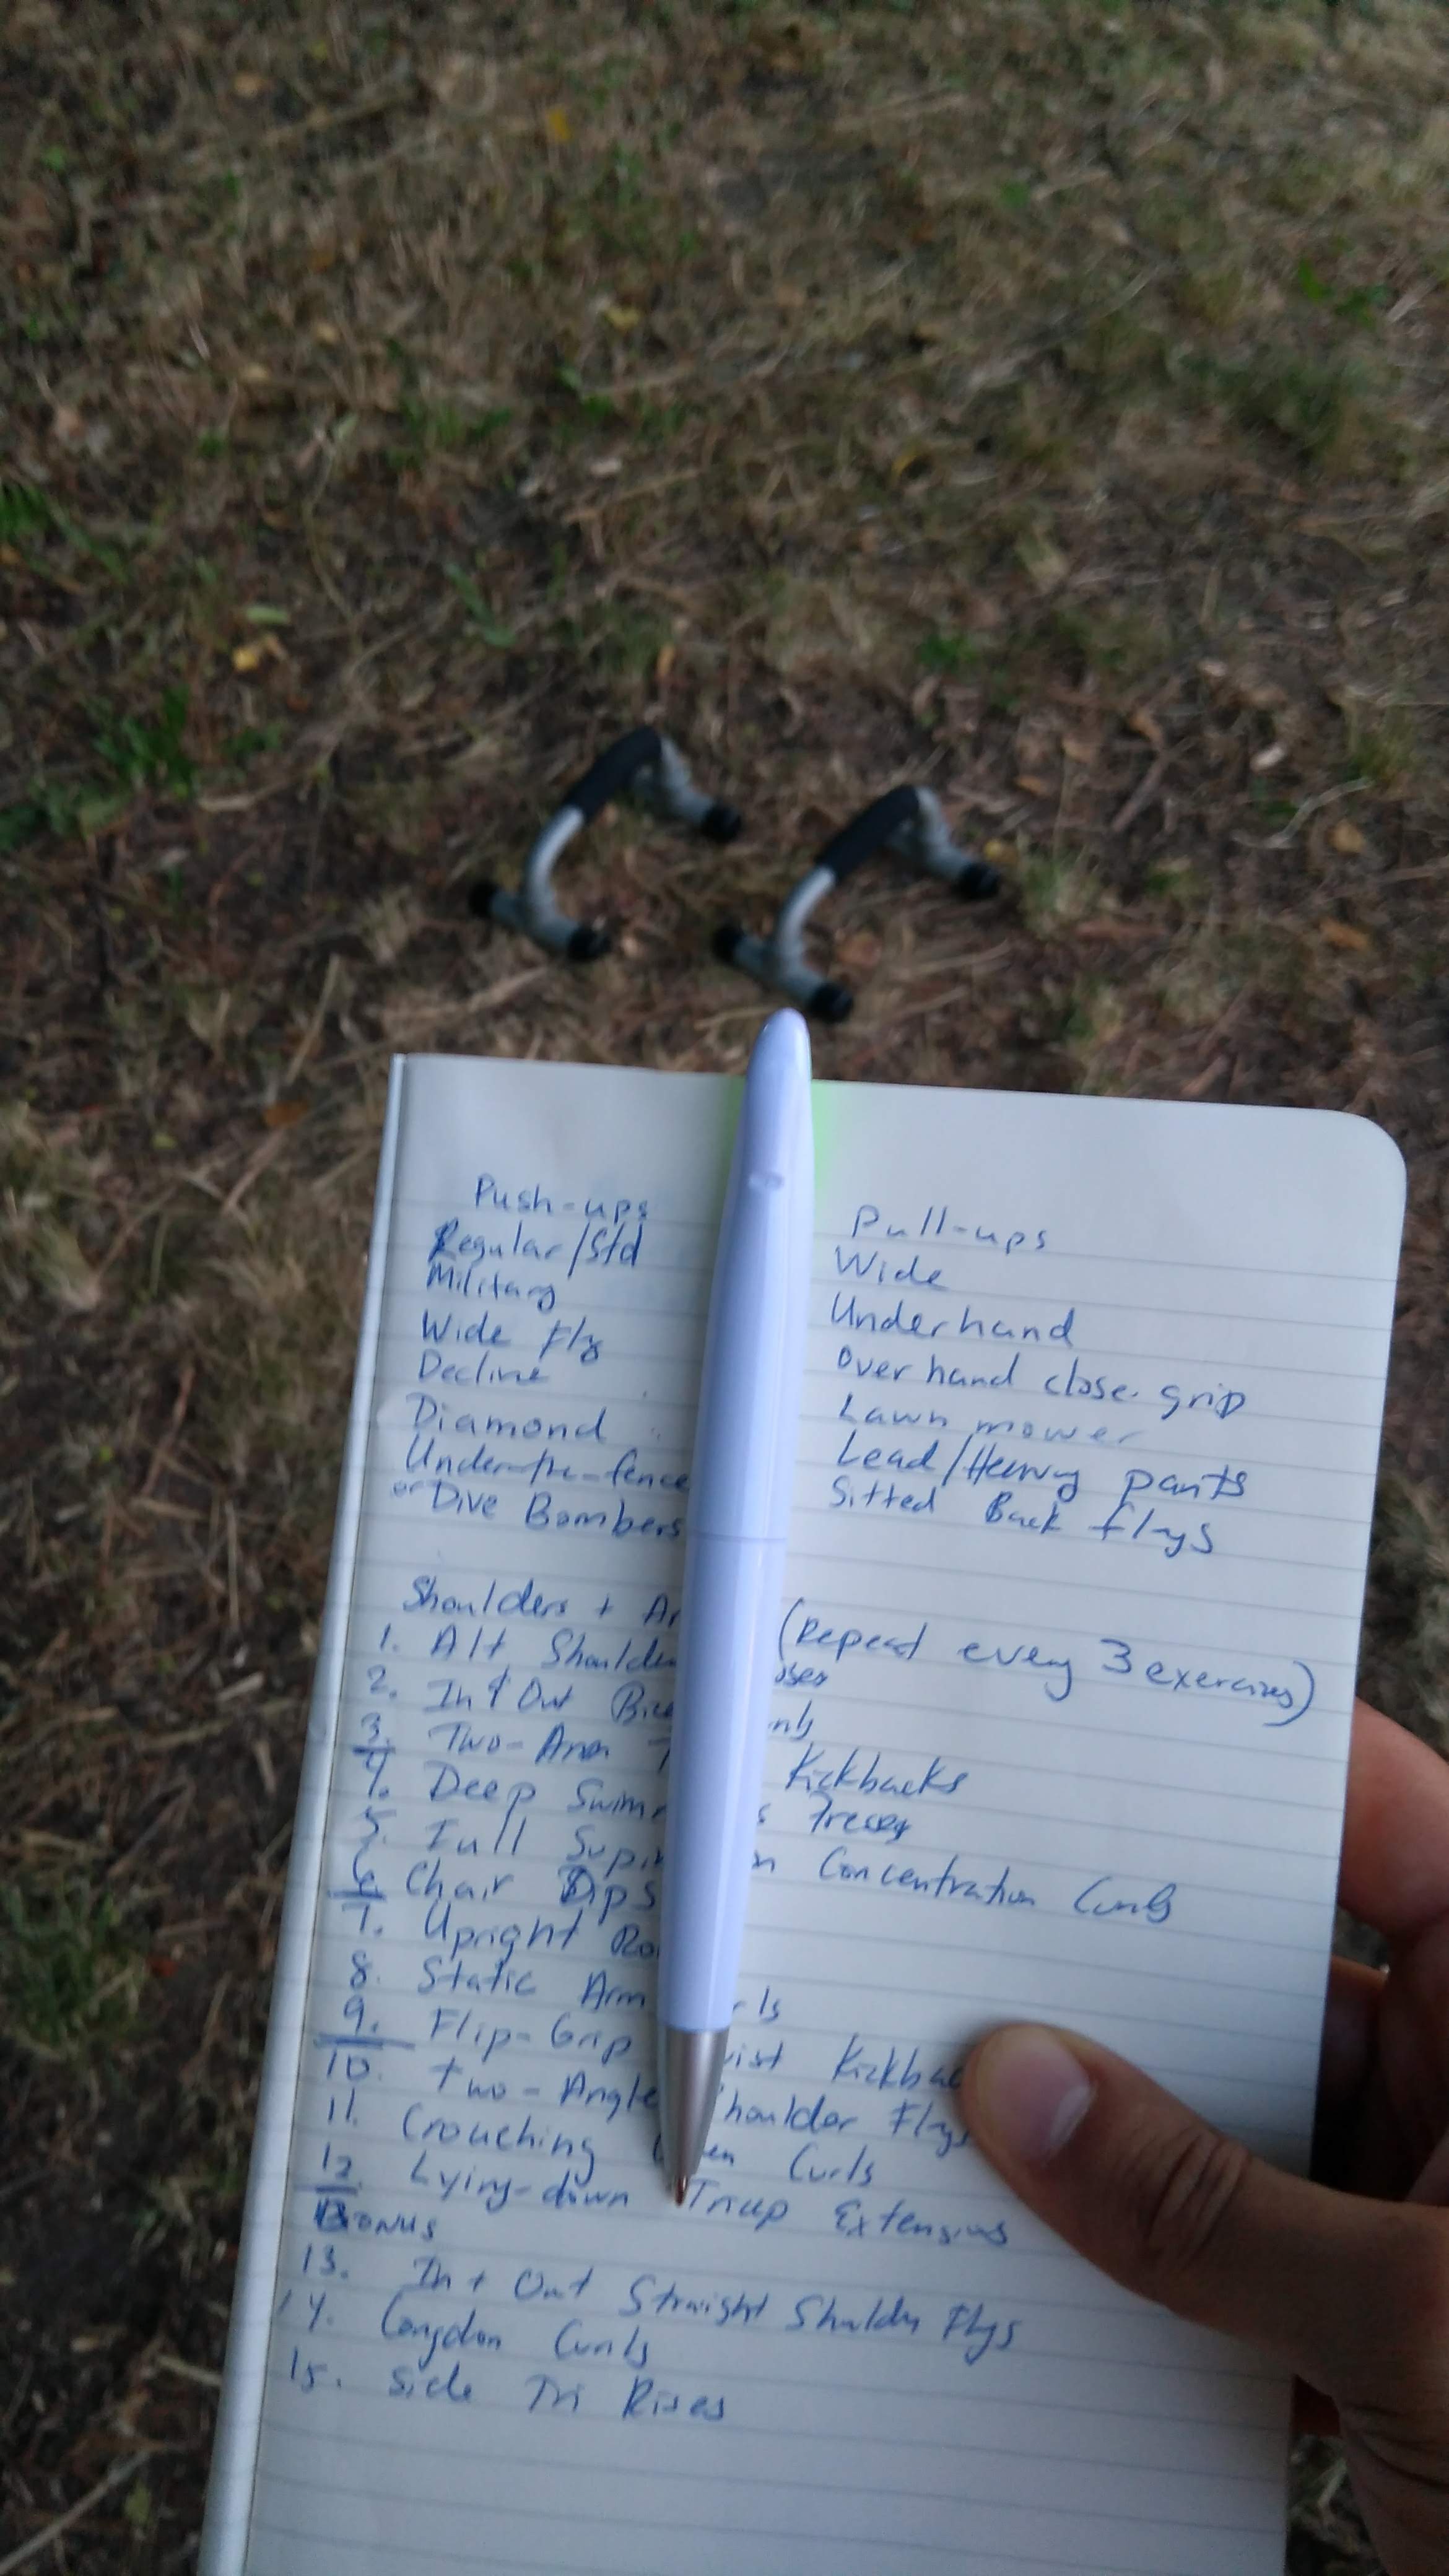 Push-ups
Regular/Std
Military
Wide Fly
Decline
Diamond
Under-the-fence
or Dive Bombers
Pull-ups
Wide
Underhand
Overhand close grip
Lawn mower
Lead/Heavy pants
Sitted Back flys
Shoulders + (Repeat every 3 exercises)
1. Alt Shoulder
2. In & Out
3. Two-Arm Kickbacks
4. Deep
5. Full Concentration Curls
6. Chair Dips
7. Upright
8. Static Arm
9. Flip-Grip
10. Two-Angle Shoulder Flys
11. Crouching Curls
12. Lying-down Tricep Extensions
Bonus
13. In + Out Straight Shoulder Flys
14. Congdon Curls
15. Side Tri Rises